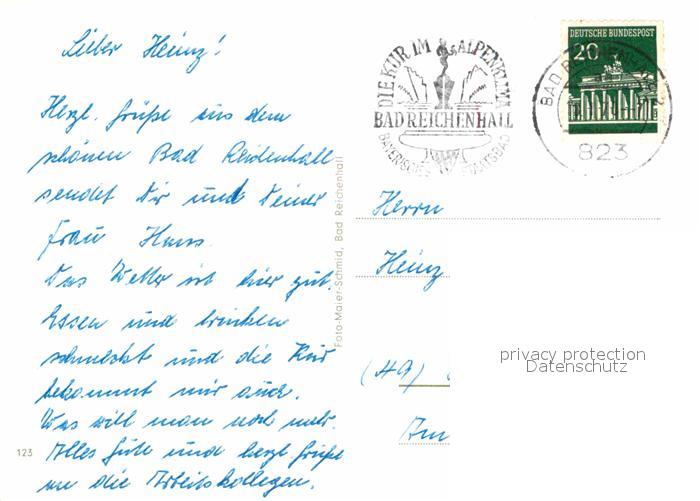 Lieber Heinz!
Herzl. Grüße aus dem
schönen Bad Reichenhall
sendet Dir und Deiner
Frau Hans.
Das Wetter ist hier gut.
Essen und trinken
schmeckt und die Kur
bekommt mir auch.
Was will man noch mehr.
Alles Gute und herzl. Grüße
an die Arbeitskollegen.
123
Foto-Maier-Schmid, Bad Reichenhall
DIE KUR IM ALPENKLIMA
BAD REICHENHALL
BAYERISCHES STAATSBAD
DEUTSCHE BUNDESPOST
20
BAD REICHENHALL
823
Herrn
Heinz
privacy protection
Datenschutz
Am